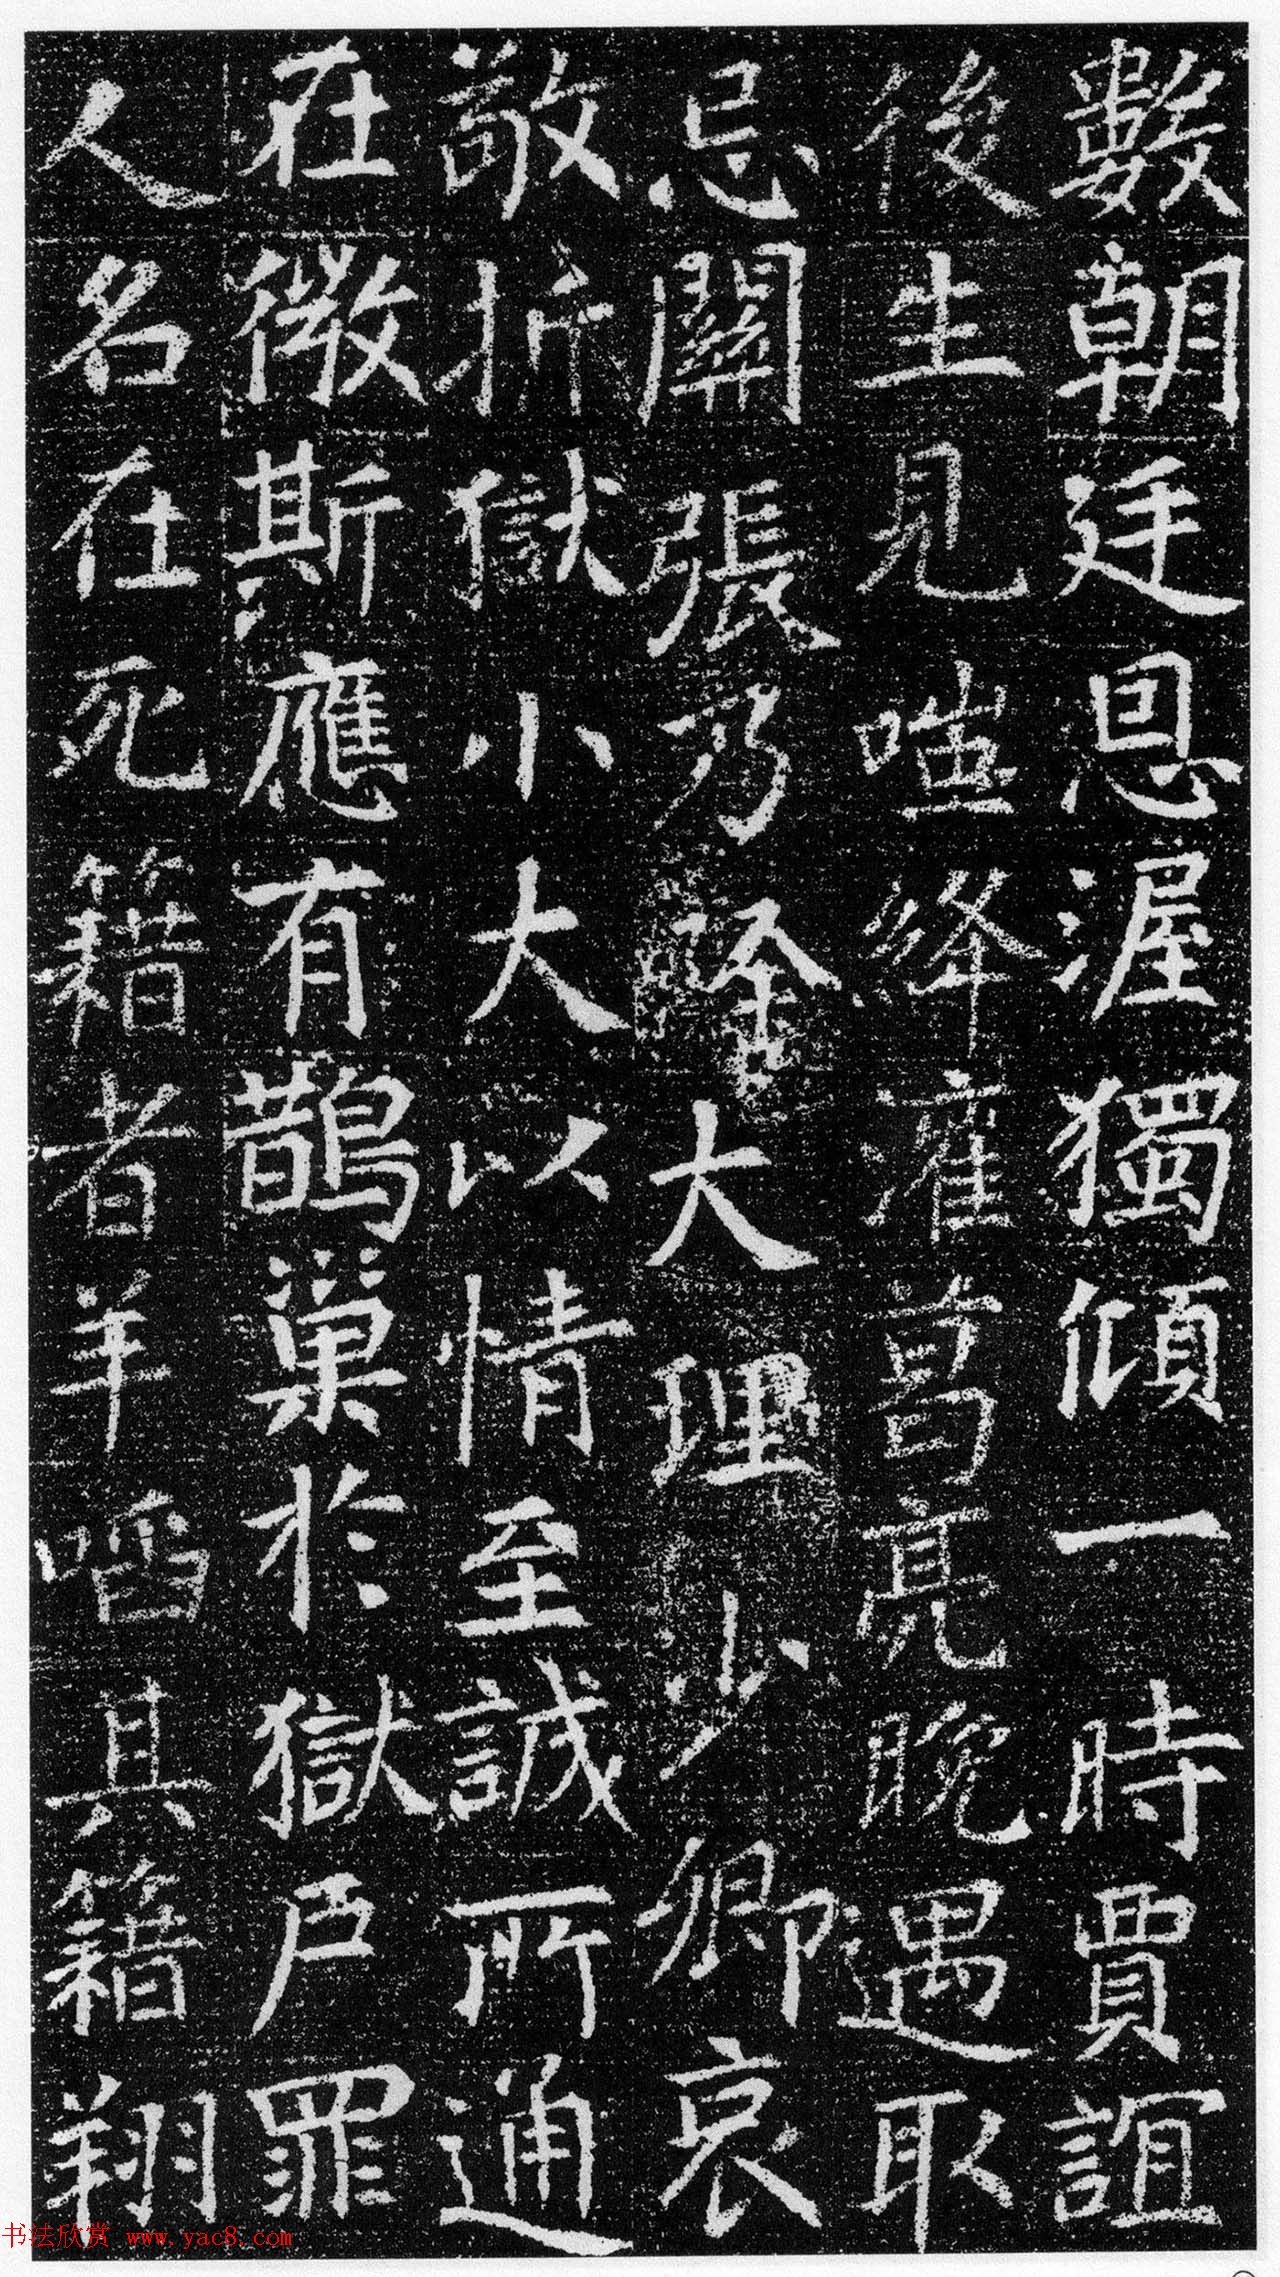 數朝廷恩渥獨傾一時賈誼
後生見嗤絳灌葛亮晚遇取
忌關張乃除大理少卿哀
敬折獄小大以情至誠所通
在微斯應有鵲巢於獄戶罪
人名在死籍者羊㗖其籍翔
书法欣赏 www.yac8.com